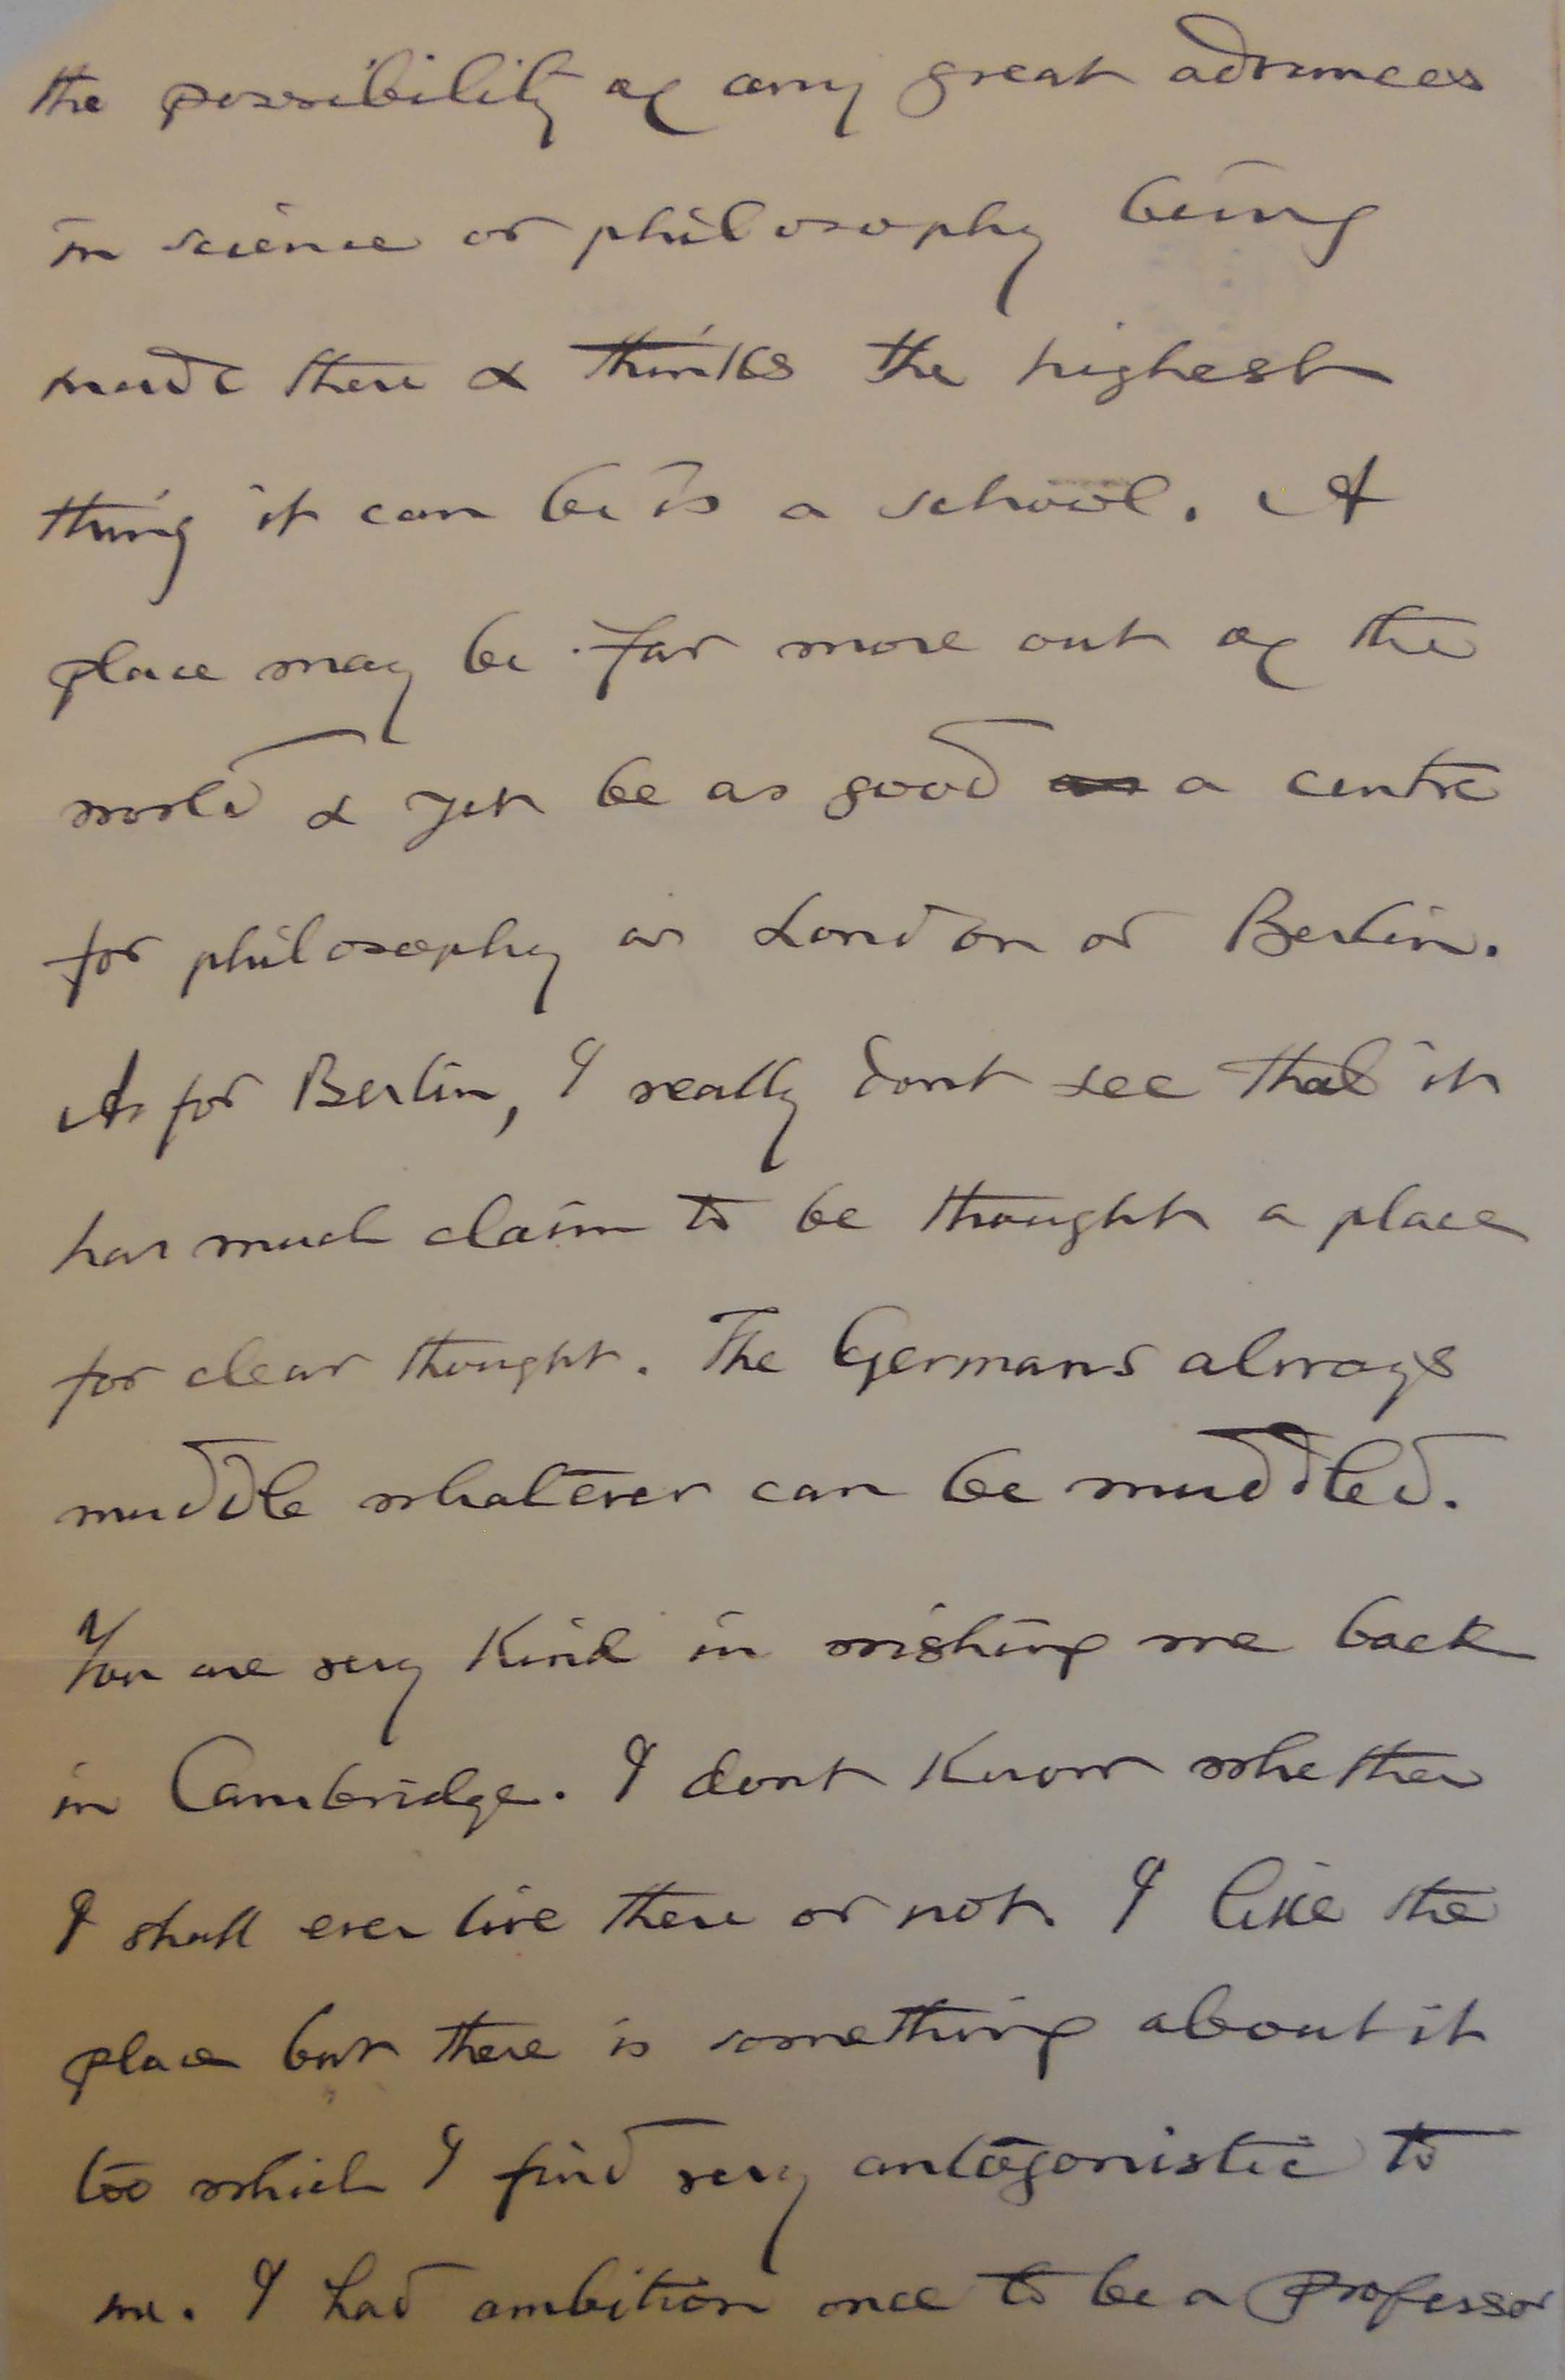 the possibility of any great advances
in science or philosophy being
made there & thinks the highest
thing it can be is a school. A
place may be far more out of the
world & yet be as good a centre
for philosophy as London or Berlin.
As for Berlin, I really dont see that it
has much claim to be thought a place
for clear thought. The Germans always
muddle whatever can be muddled.
You are very kind in wishing me back
in Cambridge. I dont know whether
I shall ever live there or not. I like the
place but there is something about it
too which I find very antagonistic to
me. I had ambition once to be a Professor